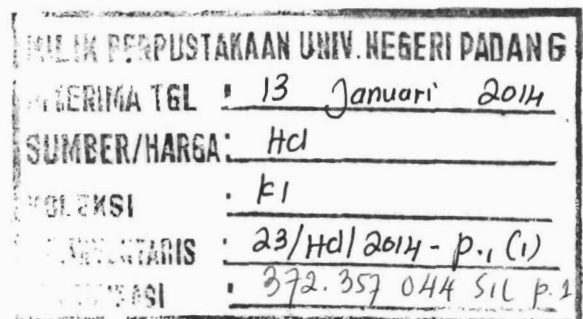 MILIK PERPUSTAKAAN UNIV. NEGERI PADANG
DITERIMA TGL : 13 Januari 2014
SUMBER/HARGA : Hd
KOLEKSI : KI
: 23/Hd/2014 - p., (1)
: 372.357 044 SIL p.1